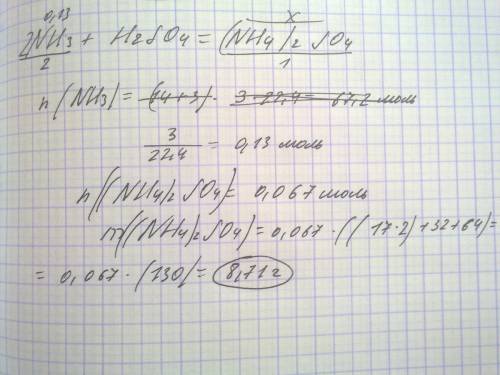 0,13 x
2NH3 + H2SO4 = (NH4)2 SO4
2 1
n(NH3) = (14+3) · 3·22,4 = 67,2 моль
3/22,4 = 0,13 моль
n((NH4)2 SO4) = 0,067 моль
m((NH4)2 SO4) = 0,067 · ((17·2)+32+64) =
= 0,067 · (130) = 8,71 г